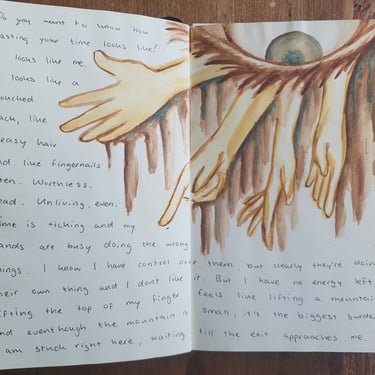 Do you want to know how
asting your time looks like?
looks like me.
looks like a
ouched
ack, like
easy hair
nd like fingernails
ten. Worthless.
ead. Unliving, even.
ime is ticking and my
ands are busy doing the wrong
hings. I know I have control over them, but clearly they're doing
heir own thing and I don't like it. But I have no energy left
ifting the top of my finger feels like lifting a mountain
nd eventhough the mountain is small, it's the biggest burde
am stuck right here, waiting till the exit approaches me.